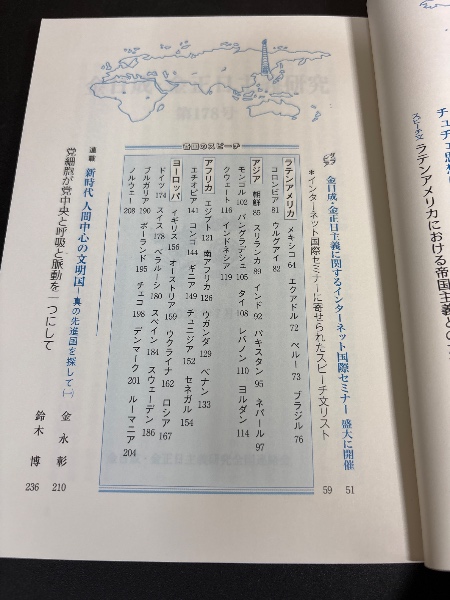 チュチェ思想
スピーチ文 ラテンアメリカにおける帝国主義との
グラビア 金日成・金正日主義に関するインターネット国際セミナー 盛大に開催 51
*インターネット国際セミナーに寄せられたスピーチ文リスト 59
各国のスピーチ
ラテンアメリカ メキシコ 64 エクアドル 72 ペルー 73 ブラジル 76
コロンビア 81 ウルグアイ 82
アジア 朝鮮 85 スリランカ 89 インド 92 パキスタン 95 ネパール 97
モンゴル 102 バングラデシュ 105 タイ 108 レバノン 110 ヨルダン 114
クウェート 116 インドネシア 119
アフリカ エジプト 121 南アフリカ 126 ウガンダ 129 ベナン 133
エチオピア 141 コンゴ 144 ギニア 149 チュニジア 152 セネガル 154
ヨーロッパ イギリス 156 オーストリア 159 ウクライナ 162 ロシア 167
ドイツ 174 スイス 178 ベラルーシ 180 スペイン 184 スウェーデン 186
ブルガリア 190 ポーランド 195 チェコ 198 デンマーク 201 ルーマニア 204
ノルウェー 208
連載 新時代 人間中心の文明国―真の先進国を探して(一) 金 永彰 210
党細胞が党中央と呼吸と脈動を一つにして 鈴木 博 236
金日成・金正日主義研究
第178号